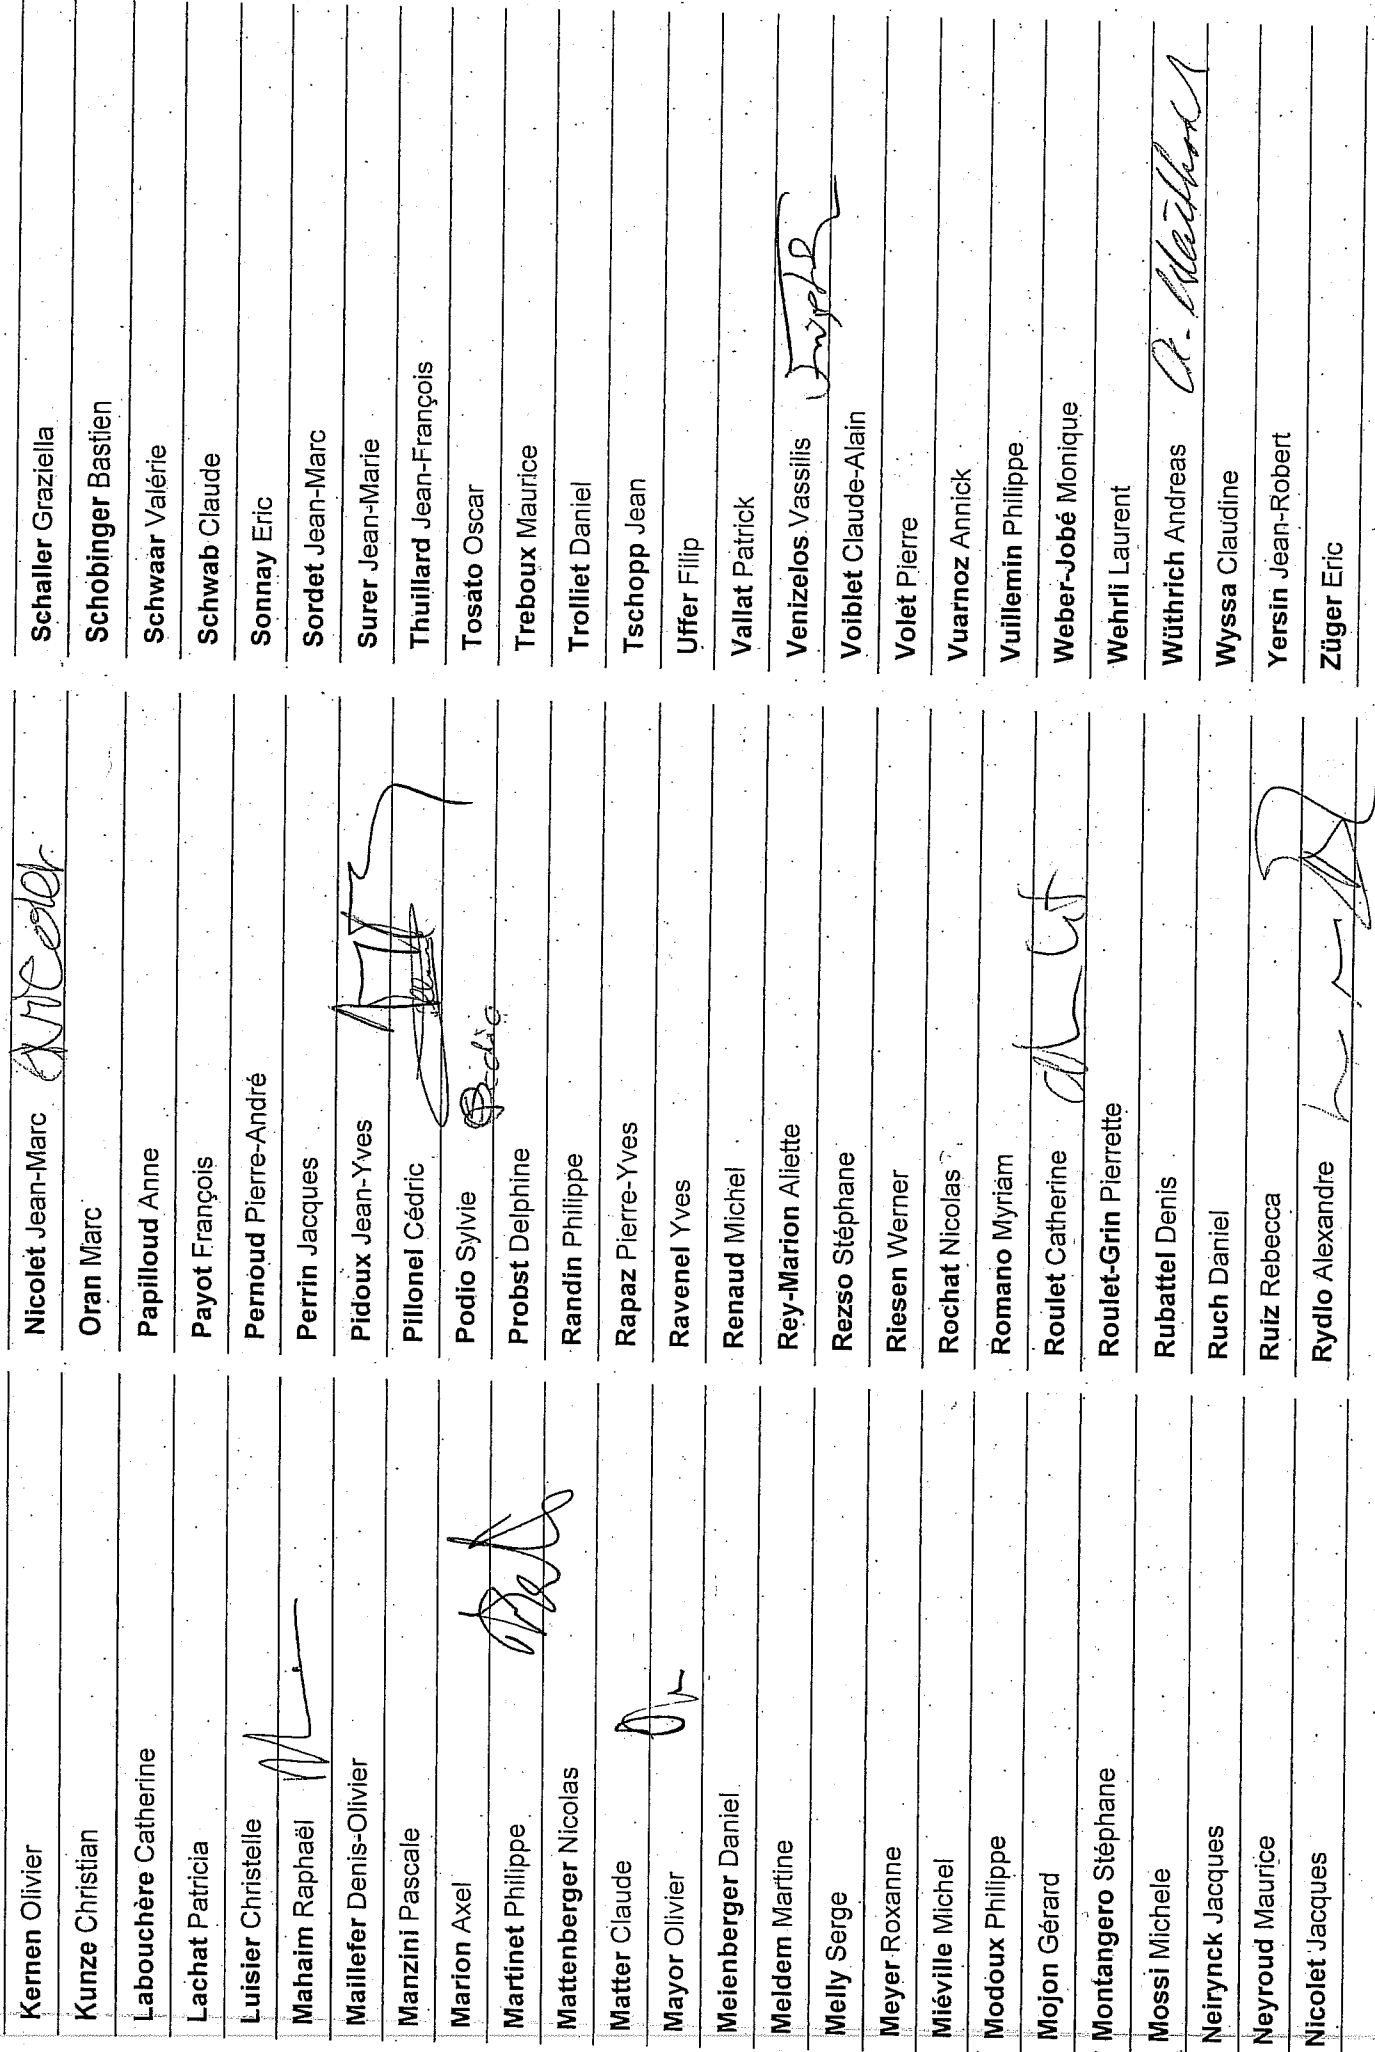 Kernen Olivier
Kunze Christian
Labouchère Catherine
Lachat Patricia
Luisier Christelle
Mahaim Raphaël
Maillefer Denis-Olivier
Manzini Pascale
Marion Axel
Martinet Philippe
Mattenberger Nicolas
Matter Claude
Mayor Olivier
Meienberger Daniel
Meldem Martine
Melly Serge
Meyer Roxanne
Miéville Michel
Modoux Philippe
Mojon Gérard
Montangero Stéphane
Mossi Michele
Neirynck Jacques
Neyroud Maurice
Nicolet Jacques
Nicolet Jean-Marc
Oran Marc
Papilloud Anne
Payot François
Pernoud Pierre-André
Perrin Jacques
Pidoux Jean-Yves
Pillonel Cédric
Podio Sylvie
Probst Delphine
Randin Philippe
Rapaz Pierre-Yves
Ravenel Yves
Renaud Michel
Rey-Marion Aliette
Rezso Stéphane
Riesen Werner
Rochat Nicolas
Romano Myriam
Roulet Catherine
Roulet-Grin Pierrette
Rubattel Denis
Ruch Daniel
Ruiz Rebecca
Rydlo Alexandre
Schaller Graziella
Schobinger Bastien
Schwaar Valérie
Schwab Claude
Sonnay Eric
Sordet Jean-Marc
Surer Jean-Marie
Thuillard Jean-François
Tosato Oscar
Treboux Maurice
Trolliet Daniel
Tschopp Jean
Uffer Filip
Vallat Patrick
Venizelos Vassilis
Voiblet Claude-Alain
Volet Pierre
Vuarnoz Annick
Vuillemin Philippe
Weber-Jobé Monique
Wehrli Laurent
Wüthrich Andreas
Wyssa Claudine
Yersin Jean-Robert
Züger Eric